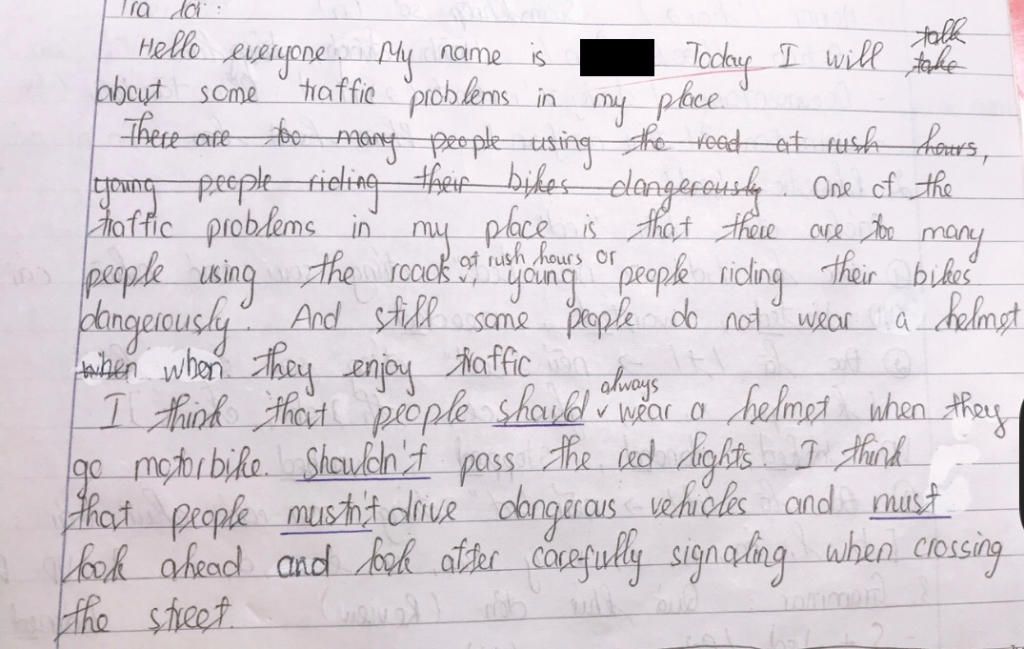 Trả lời:
Hello everyone. My name is Today I will talk take
about some traffic problems in my place
There are too many people using the road at rush hours,
young people riding their bikes dangerously One of the
traffic problems in my place is that there are too many
people using the roads at rush hours or young people riding their bikes
dangerously. And still some people do not wear a helmet
when when they enjoy traffic
I think that people should always wear a helmet when they
go motorbike. Shouldn't pass the red lights. I think
that people mustn't drive dangerous vehicles and must
look ahead and look after carefully signaling when crossing
the street.